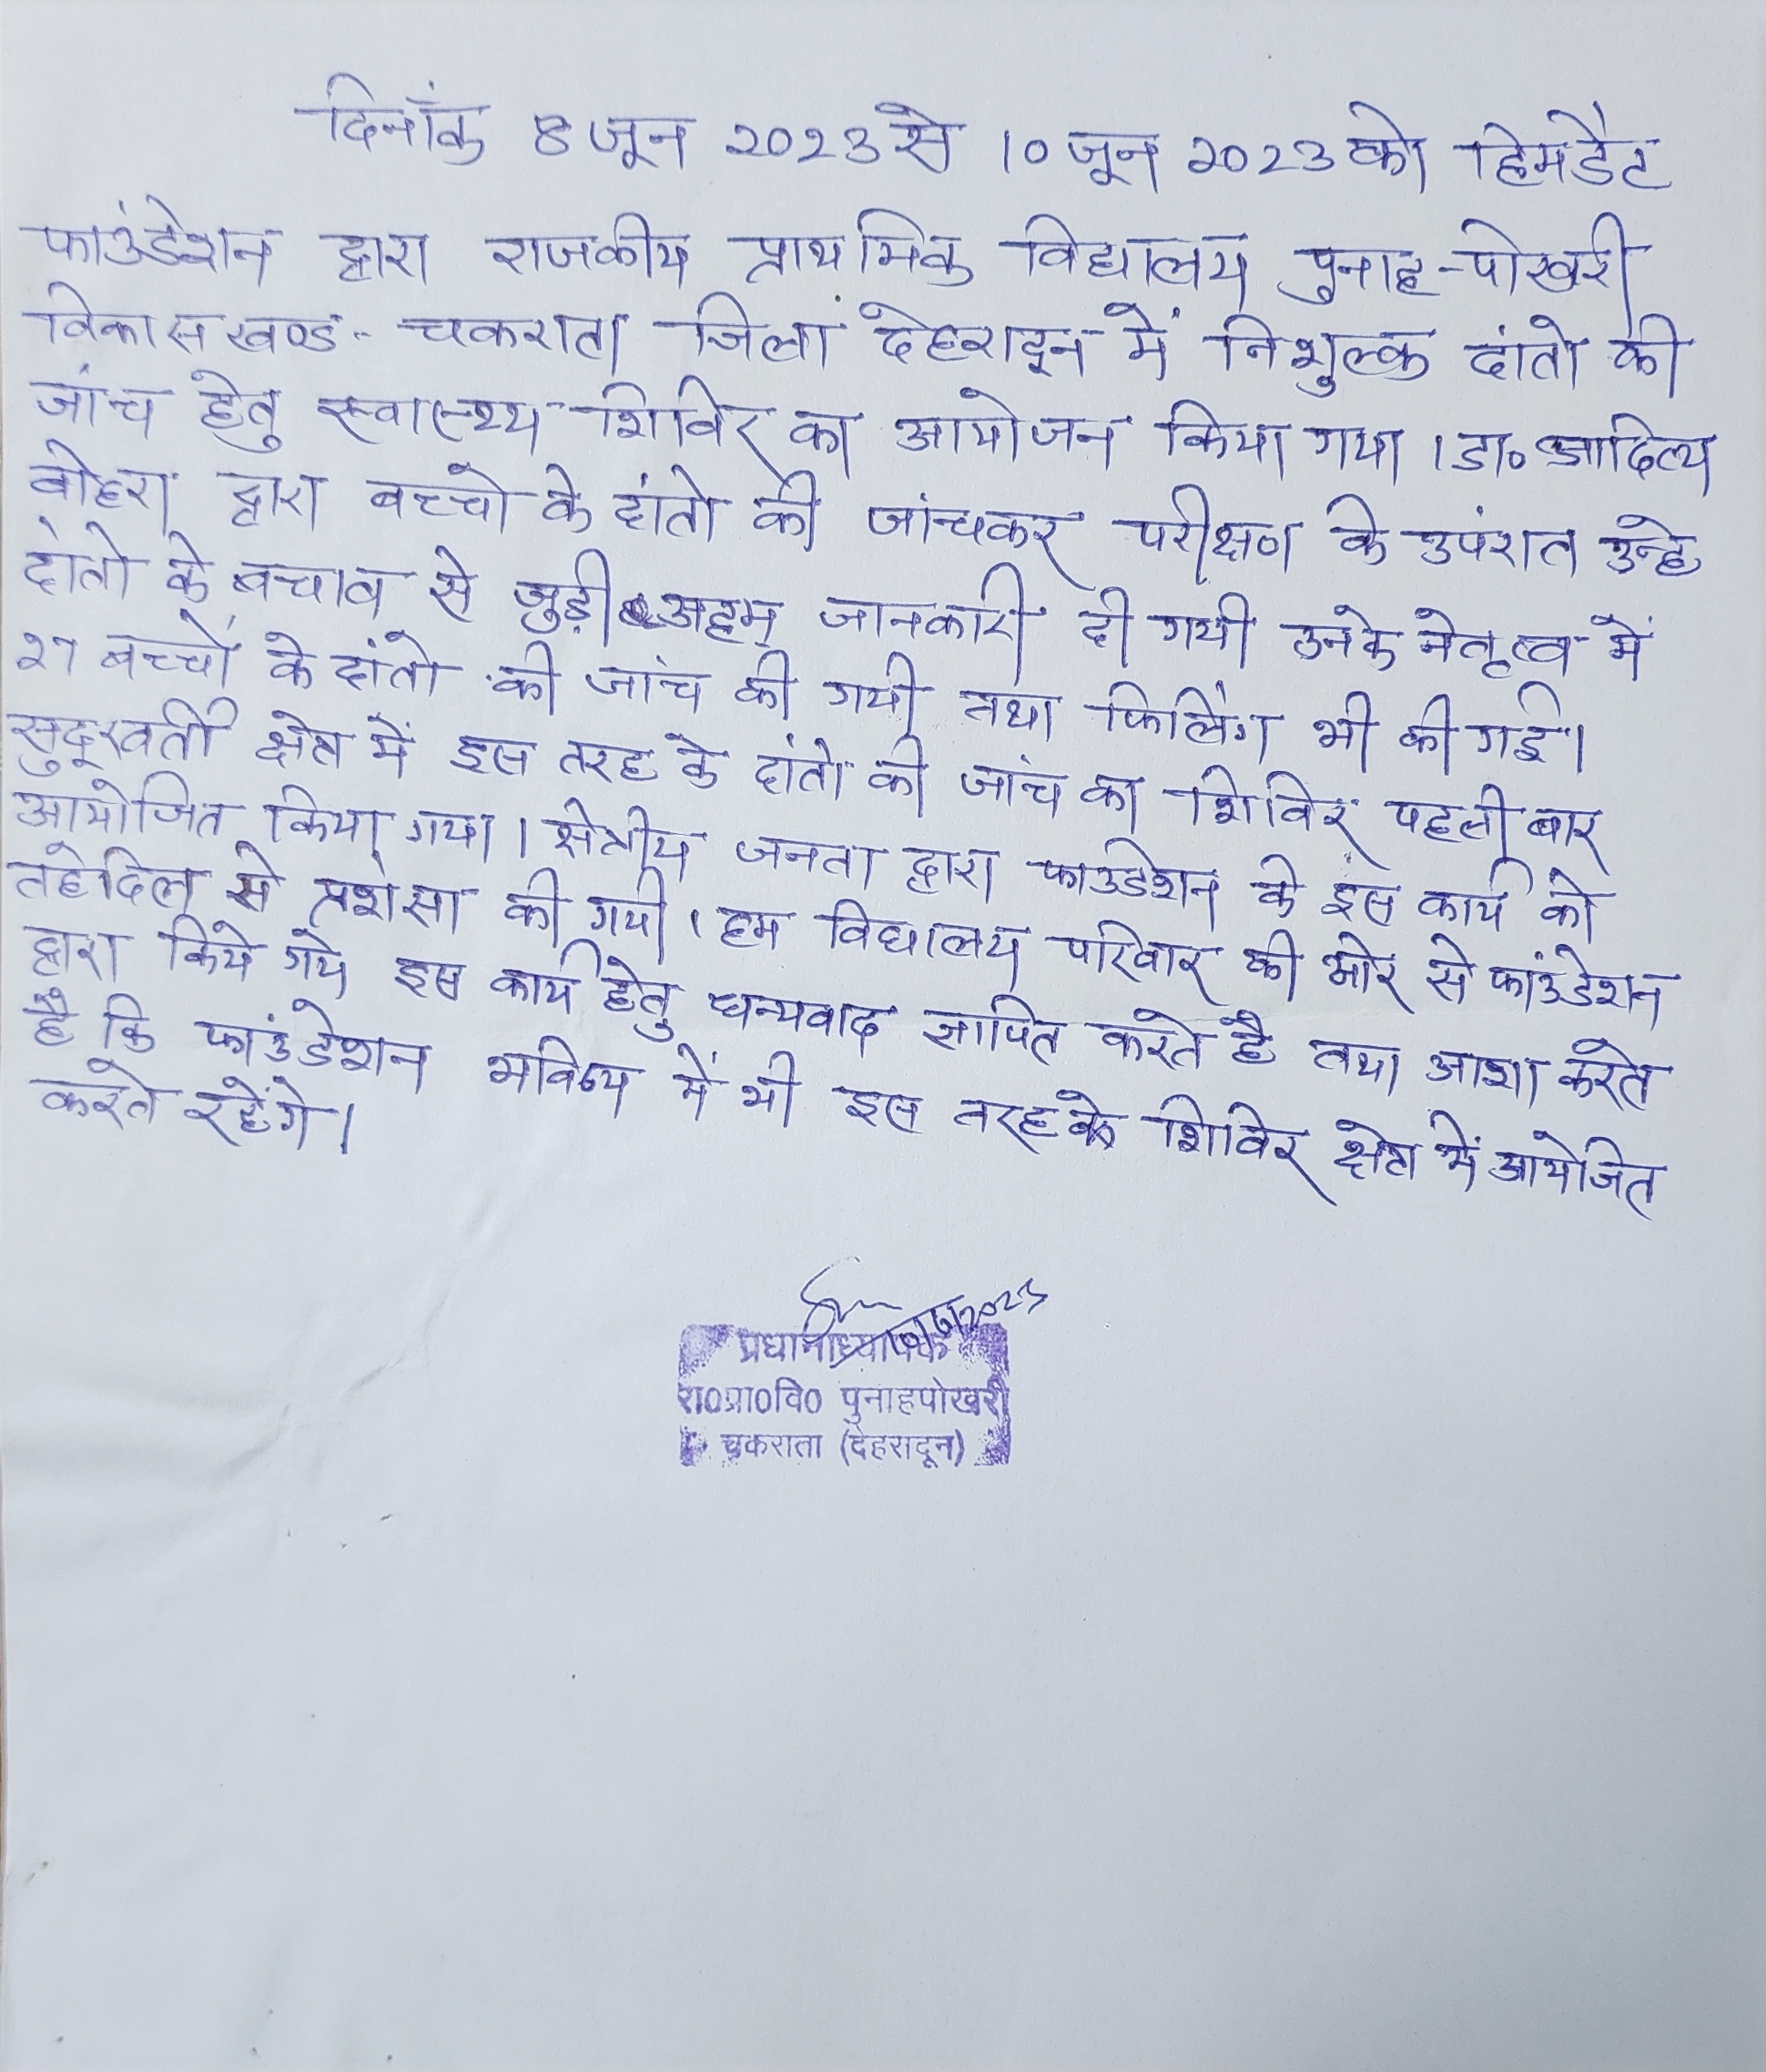 दिनाँक 8 जून 2023 से 10 जून 2023 को हिमडैट
फाउंडेशन द्वारा राजकीय प्राथमिक विद्यालय पुनाह-पोखरी
विकासखण्ड - चकराता जिला देहरादून में निशुल्क दांतो की
जांच हेतु स्वास्थ्य शिविर का आयोजन किया गया । डा० आदित्य
वोहरा द्वारा बच्चो के दांतो की जांचकर परीक्षण के उपंरात उन्हे
दांतो के बचाव से जुड़ी अहम जानकारी दी गयी उनके नेतृत्व में
27 बच्चों के दांतो की जांच की गयी तथा फिलिंग भी की गई।
सुदूरवर्ती क्षेत्र में इस तरह के दांतो की जांच का शिविर पहली बार
आयोजित किया गया । क्षेत्रीय जनता द्वारा फाउडेशन के इस कार्य को
तहेदिल से प्रशंसा की गयी । हम विद्यालय परिवार की ओर से फांउडेशन
द्वारा किये गये इस कार्य हेतु धन्यवाद ज्ञापित करते है तथा आशा करते
है कि फांउडेशन भविष्य में भी इस तरह के शिविर क्षेत्र में आयोजित
करते रहेंगे।
प्रधानाध्यापक
रा0प्रा0वि0 पुनाहपोखरी
चकराता (देहरादून)